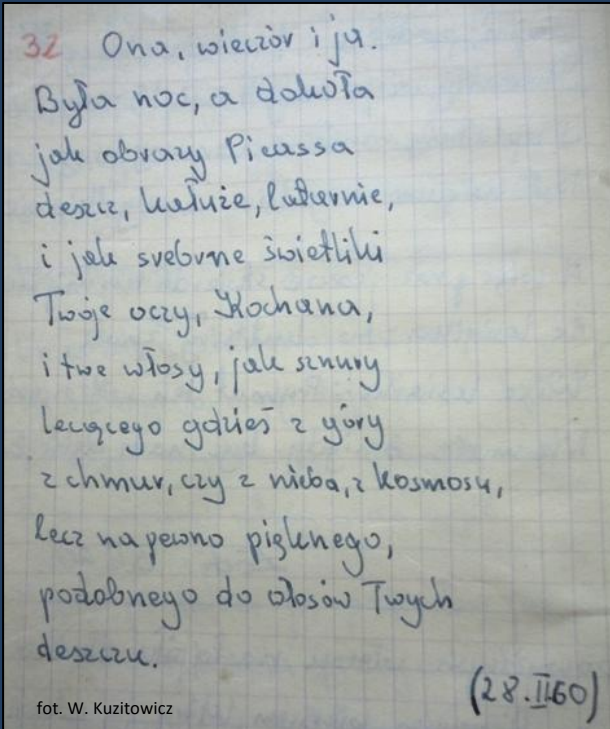 32 Ona, wieczór i ja.
Była noc, a dokoła
jak obrazy Picassa
deszcz, kałuże, latarnie,
i jak srebrne świetliki
Twoje oczy, Kochana,
i twe włosy, jak sznury
lecącego gdzieś z góry
z chmur, czy z nieba, z kosmosu,
lecz na pewno pięknego,
podobnego do włosów Twych
deszczu.
(28.II.60)
fot. W. Kuzitowicz